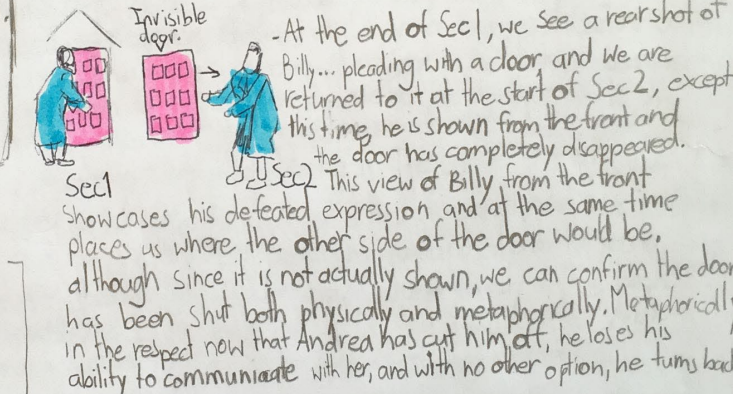 Invisible
door.
-At the end of Sec1, we see a rear shot of
Billy... pleading with a door and we are
returned to it at the start of Sec2, except
this time, he is shown from the front and
the door has completely disappeared.
Sec1
Sec2 This view of Billy from the front
showcases his defeated expression and at the same time
places us where the other side of the door would be,
although since it is not actually shown, we can confirm the door
has been shut both physically and metaphorically. Metaphorically
in the respect now that Andrea has cut him off, he loses his
ability to communicate with her, and with no other option, he turns bac